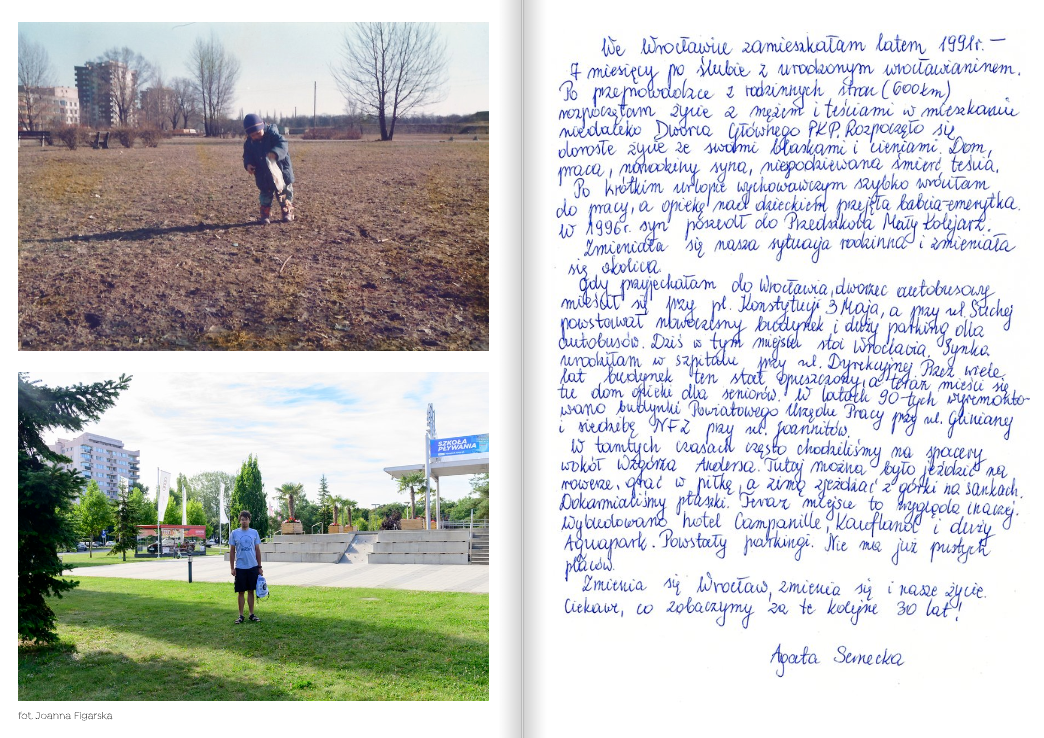 SZKOŁA
PŁYWANIA
fot. Joanna Figarska
We Wrocławiu zamieszkałam latem 1991r. –
7 miesięcy po ślubie z urodzonym wrocławianinem.
Po przeprowadzce z rodzinnych stron (600km)
rozpoczęłam życie z mężem i teściami w mieszkaniu
niedaleko Dworca Głównego PKP. Rozpoczęło się
dorosłe życie ze swoimi blaskami i cieniami. Dom,
praca, narodziny syna, niespodziewana śmierć teścia.
Po krótkim urlopie wychowawczym szybko wróciłam
do pracy, a opiekę nad dzieckiem przejęła babcia-emerytka.
W 1996r. syn poszedł do Przedszkola Mały Kolejarz.
Zmieniała się nasza sytuacja rodzinna i zmieniała
się okolica.
Gdy przyjechałam do Wrocławia, dworzec autobusowy
mieścił się przy pl. Konstytucji 3 Maja, a przy ul. Suchej
powstawał nowoczesny budynek i duży parking dla
autobusów. Dziś w tym miejscu stoi Wroclavia. Synka
urodziłam w szpitalu przy ul. Dyrekcyjnej. Przez wiele
lat budynek ten stał opuszczony, a teraz mieści się
tu dom opieki dla seniorów. W latach 90-tych wyremonto-
wano budynki Powiatowego Urzędu Pracy przy ul. Glinianej
i siedzibę NFZ przy ul. Joannitów.
W tamtych czasach często chodziliśmy na spacery
wokół Wzgórza Andersa. Tutaj można było jeździć na
rowerze, grać w piłkę, a zimą zjeżdżać z górki na sankach.
Dokarmialiśmy ptaszki. Teraz miejsce to wygląda inaczej.
Wybudowano hotel Campanille, Kaufland i duży
Aquapark. Powstały parkingi. Nie ma już pustych
placów.
Zmienia się Wrocław, zmienia się i nasze życie.
Ciekawe, co zobaczymy za te kolejne 30 lat!
Agata Semecka